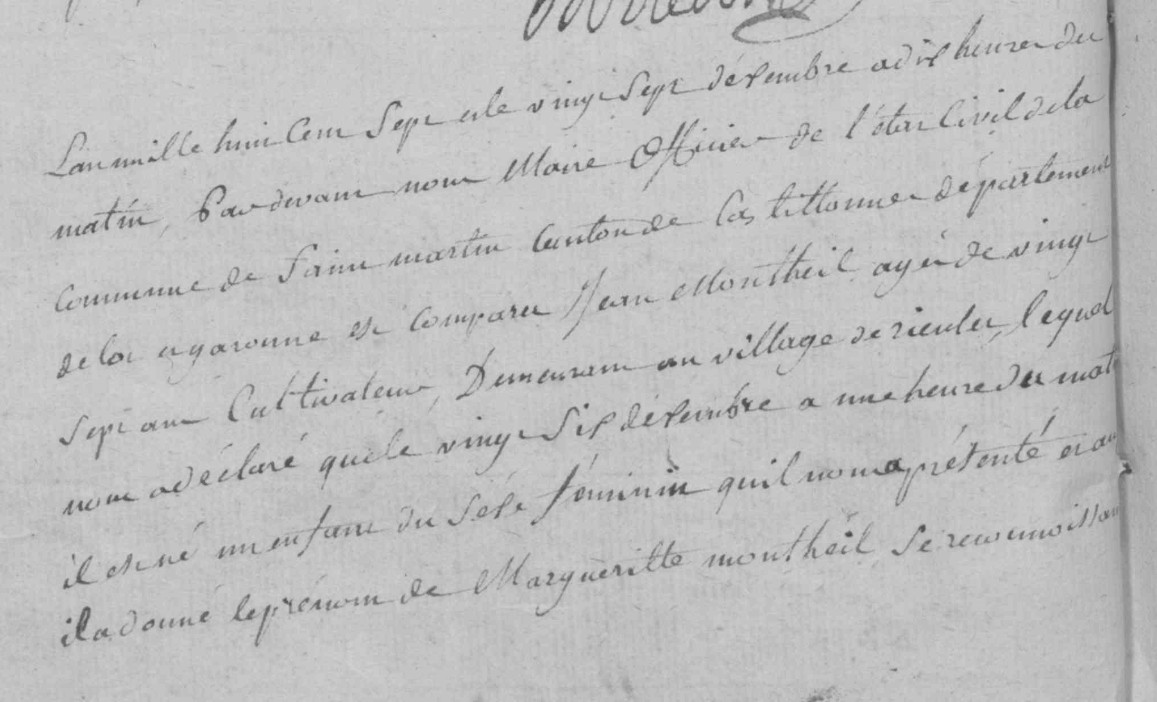 L'an mille huit Cent Sept et le vingt Sept désembre a dix heures du
matin, Pardevant nous Maire Officier de l'état Civil de la
Commune de Saint martin Canton de Castillonnes département
de lot et garonne est Comparu Jean Montheil agée de vingt
Sept ans Cultivateur, Demeurant au village de rieules, lequel
nous a déclaré que le vingt Six désembre a une heure du mat
il est né un enfant du Sexe féminin qu'il nous a présenté et au
il a donné le prénom de Margueritte montheil Se reconnoissan